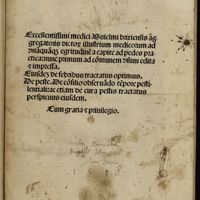 Excellentissimi medici Guielmi brixiensis ag
gregatoris dictoꝝ illustrium medicorum ad
vnāquāꝗꝫ egritudinē a capite ad pedes pra
cticarū nunc primum ad cōmunem vsum edita
et impressa.
Eiusdē de febribus tractatus optimus.
De peste. De cōsilio obseruādo tēpore pesti
lentiali ac etiam de cura pestis tractatus
perspicuus eiusdem.
Cum gratia et priuilegio.